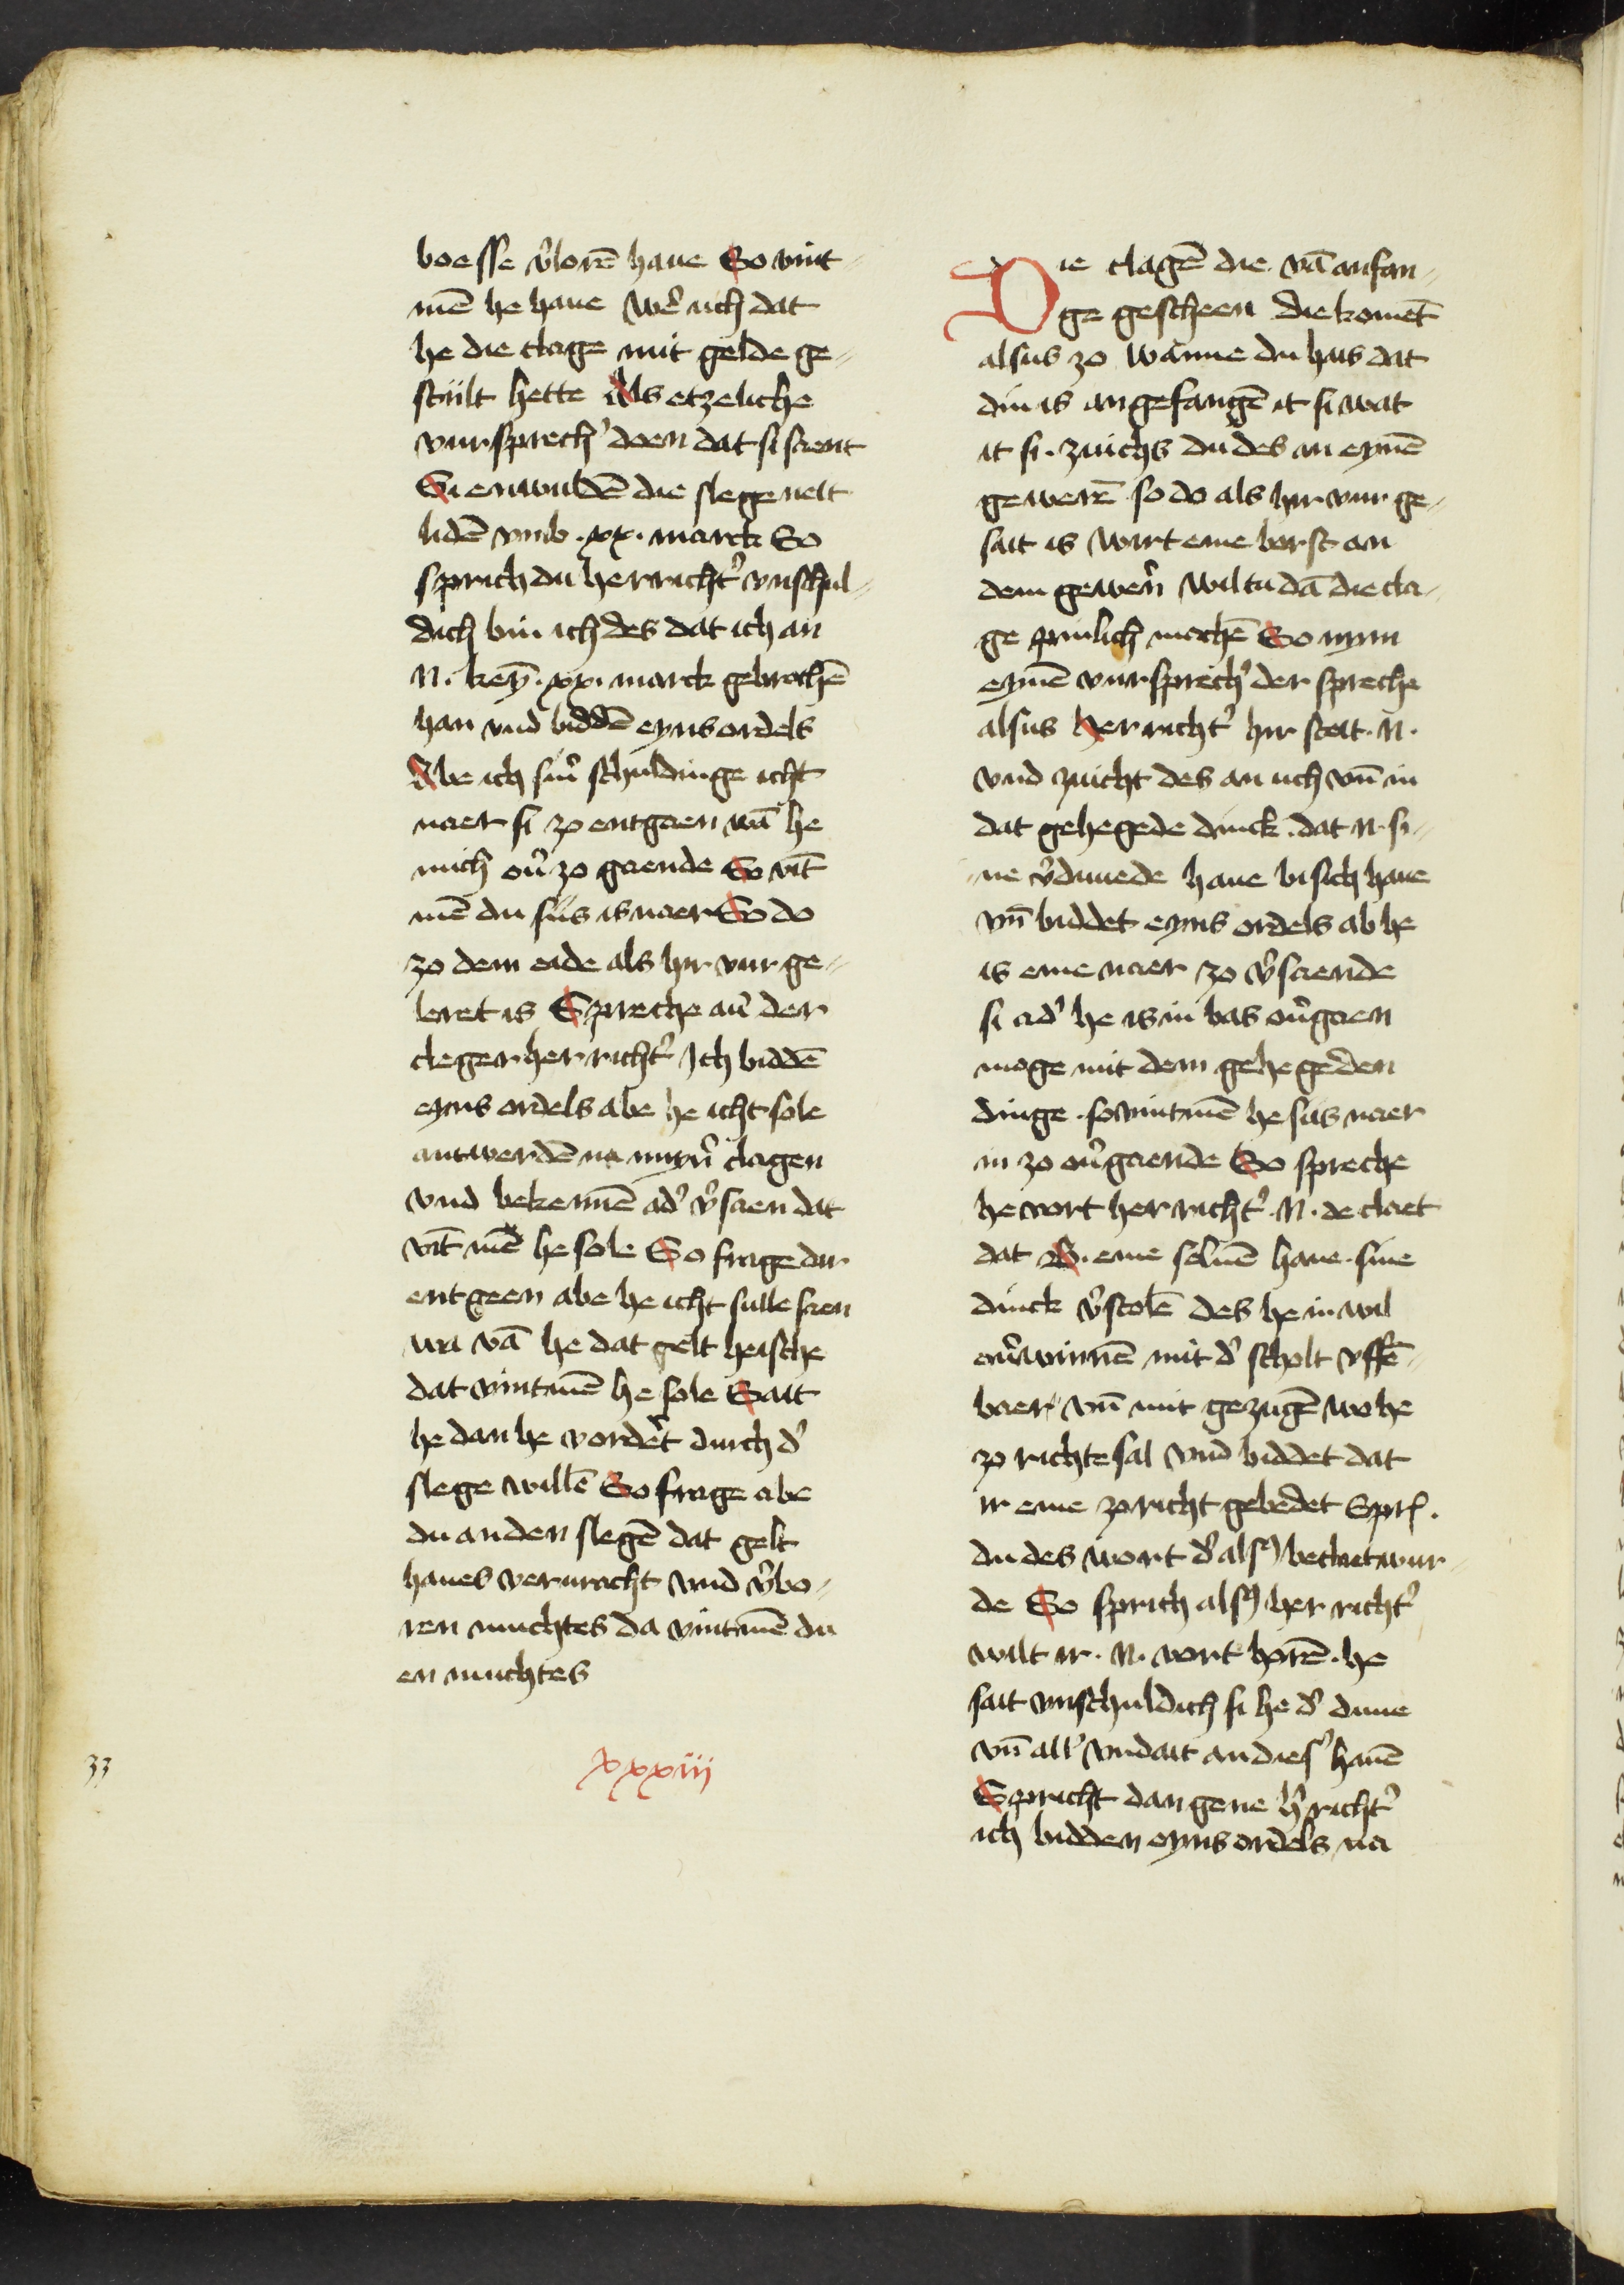 boesse v̉lorē haue So vint
mē he haue wēr uch dat
he die clage mit gelde ge
stillt hette Als etzeliche
vursprech̉ doen dat si saent
Si enwuldē die slege neit
lidē vmb .xx. marck So
sprich du her richt̉ vnschul
dich bin ich des dat ich an
N. keȳ .xx. marck gebrochē
han vnd biddē eyns ordels
Abe ich sinr̉ schuldinge icht
naer si zo entgaen wā he
mich oủ zo gaende So vīt
mē du siis is naer So do
zo dem eide als hir vur ge
leret is Spreche aủ der
cleger her richt̉ Ich biddē
eyns ordels abe he icht sole
antwerdē na mynr̉ clagen
vnd bekennē ad̉ v̉saen dat
vīt mē he sole So frage du
entgeen abe he icht sulle saen
wa vā he dat gelt heische
dat vintmē he sole Sait
he dan he vordēt durch d̉
slege willē So frage abe
du an den slegē dat gelt
haues verwracht vnd v̉bo
ren muchtes da vintmē du
en muchtes
33
xxxiij
Die clagē die vā anfan
ge gescheen die komēt
alsus zo wanne du hais dat
din is angefangē it si wat
it si. zuichs du des an eynē
gewerē so do als hir vur ge
sait is wirt eme borst an
dem gewern̉ wiltu dā die cla
ge pinlich machē So nym
eynē vursprech̉ der spreche
alsus her richt̉ hir steit .N.
vnd zuicht des an uch vn̄ in
dat gehegede dinck. dat N. si
ne v̉duuede haue bi sich haue
vn̄ biddet eyns ordels ab he
is eme naer zo v̉saende
si ad̉ he is in bas oủgaen
moge mit dem gehegeden
dinge. so vintmē he siis naer
in zo oủgaende So spreche
he vort her richt̉ .N. de claet
dat B. eme seluē haue. sine
dinck v̉stolē des he in wil
oủwinnē mit d̉ scholt vffē
baer vn̄ mit gezugē wo he
zo richte sal vnd biddet dat
ir eme zo richt gebedet Spr.
du des wort d̉ als9 beclaet wur
de So sprich als9 her richt̉
wilt ir. N. wort horē. he
sait vnschuldich si he d̉ duue
vn̄ all̉ vndait an dies̉ hauē
Spricht dan gene h̉richt̉
ich bidden eyns ordels na